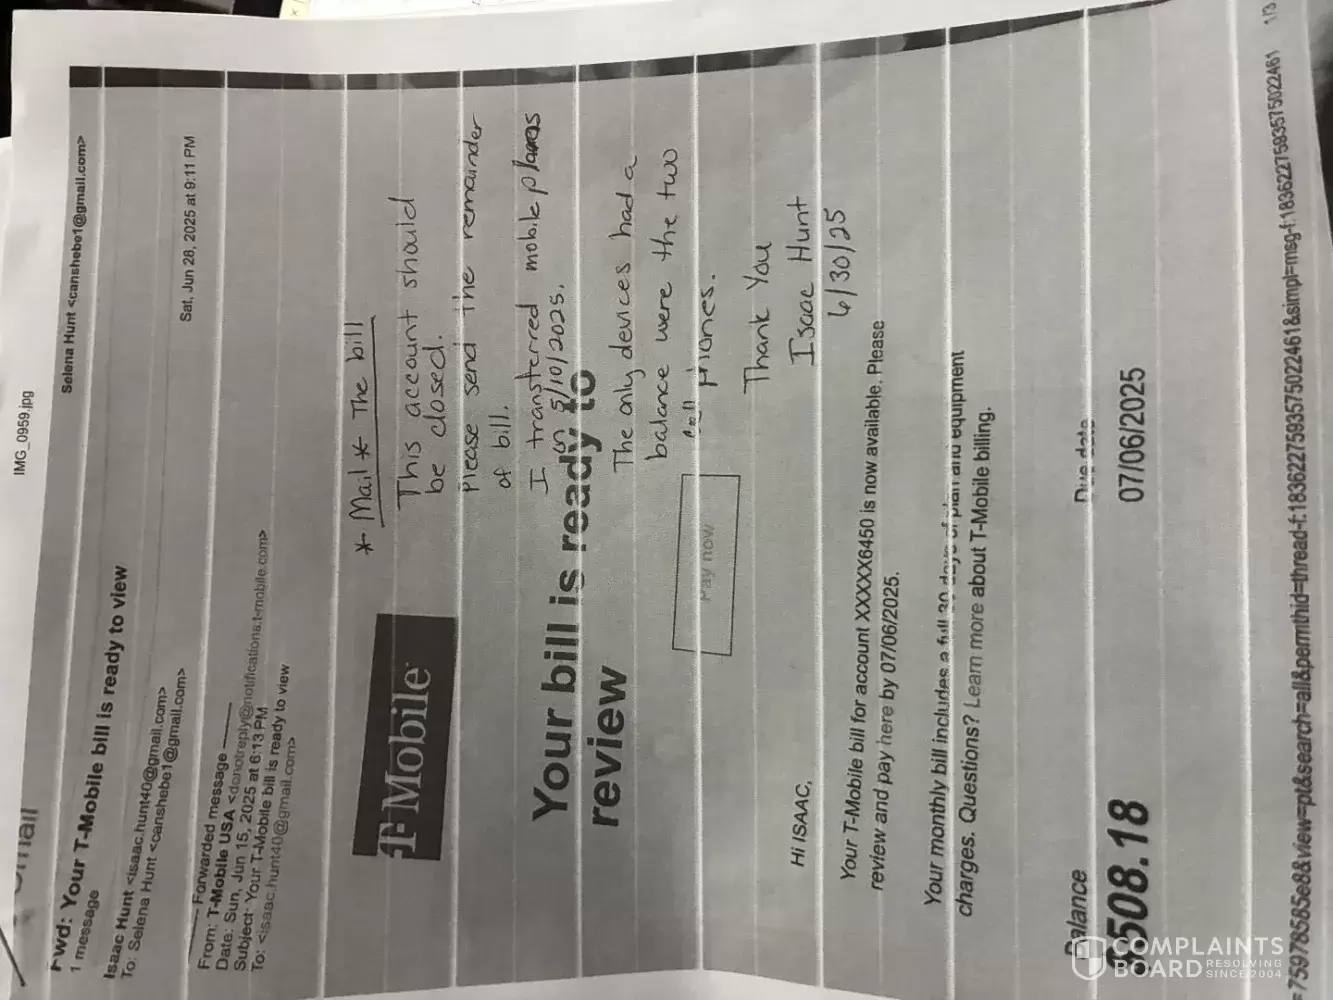 IMG_0959.jpg
Selena Hunt <canshebe1@gmail.com>
Fwd: Your T-Mobile bill is ready to view
1 message
Isaac Hunt <isaac.hunt40@gmail.com>
Sat, Jun 28, 2025 at 9:11 PM
To: Selena Hunt <canshebe1@gmail.com>
Forwarded message
From: T-Mobile USA <donotreply@notifications.t-mobile.com>
Date: Sun, Jun 15, 2025 at 6:13 PM
Subject: Your T-Mobile bill is ready to view
To: <isaac.hunt40@gmail.com>
* Mail * The bill
This account should
be closed.
Please send the remainder
of bill.
I transferred mobile plans
on 5/10/2025.
The only devices had a
balance were the two
cell phones.
Thank You
Isaac Hunt
6/30/25
T-Mobile
Your bill is ready to
review
Pay now
Hi ISAAC,
Your T-Mobile bill for account XXXXX6450 is now available. Please
review and pay here by 07/06/2025.
Your monthly bill includes a full 30 days of plan and equipment
charges. Questions? Learn more about T-Mobile billing.
Balance
Due date
$508.18
07/06/2025
=75978585e8&view=pt&search=all&permthid=thread-f:1836227593575022461&simpl=msg-f:1836227593575022461
1/3
COMPLAINTS
BOARD
RESOLVING
SINCE 2004